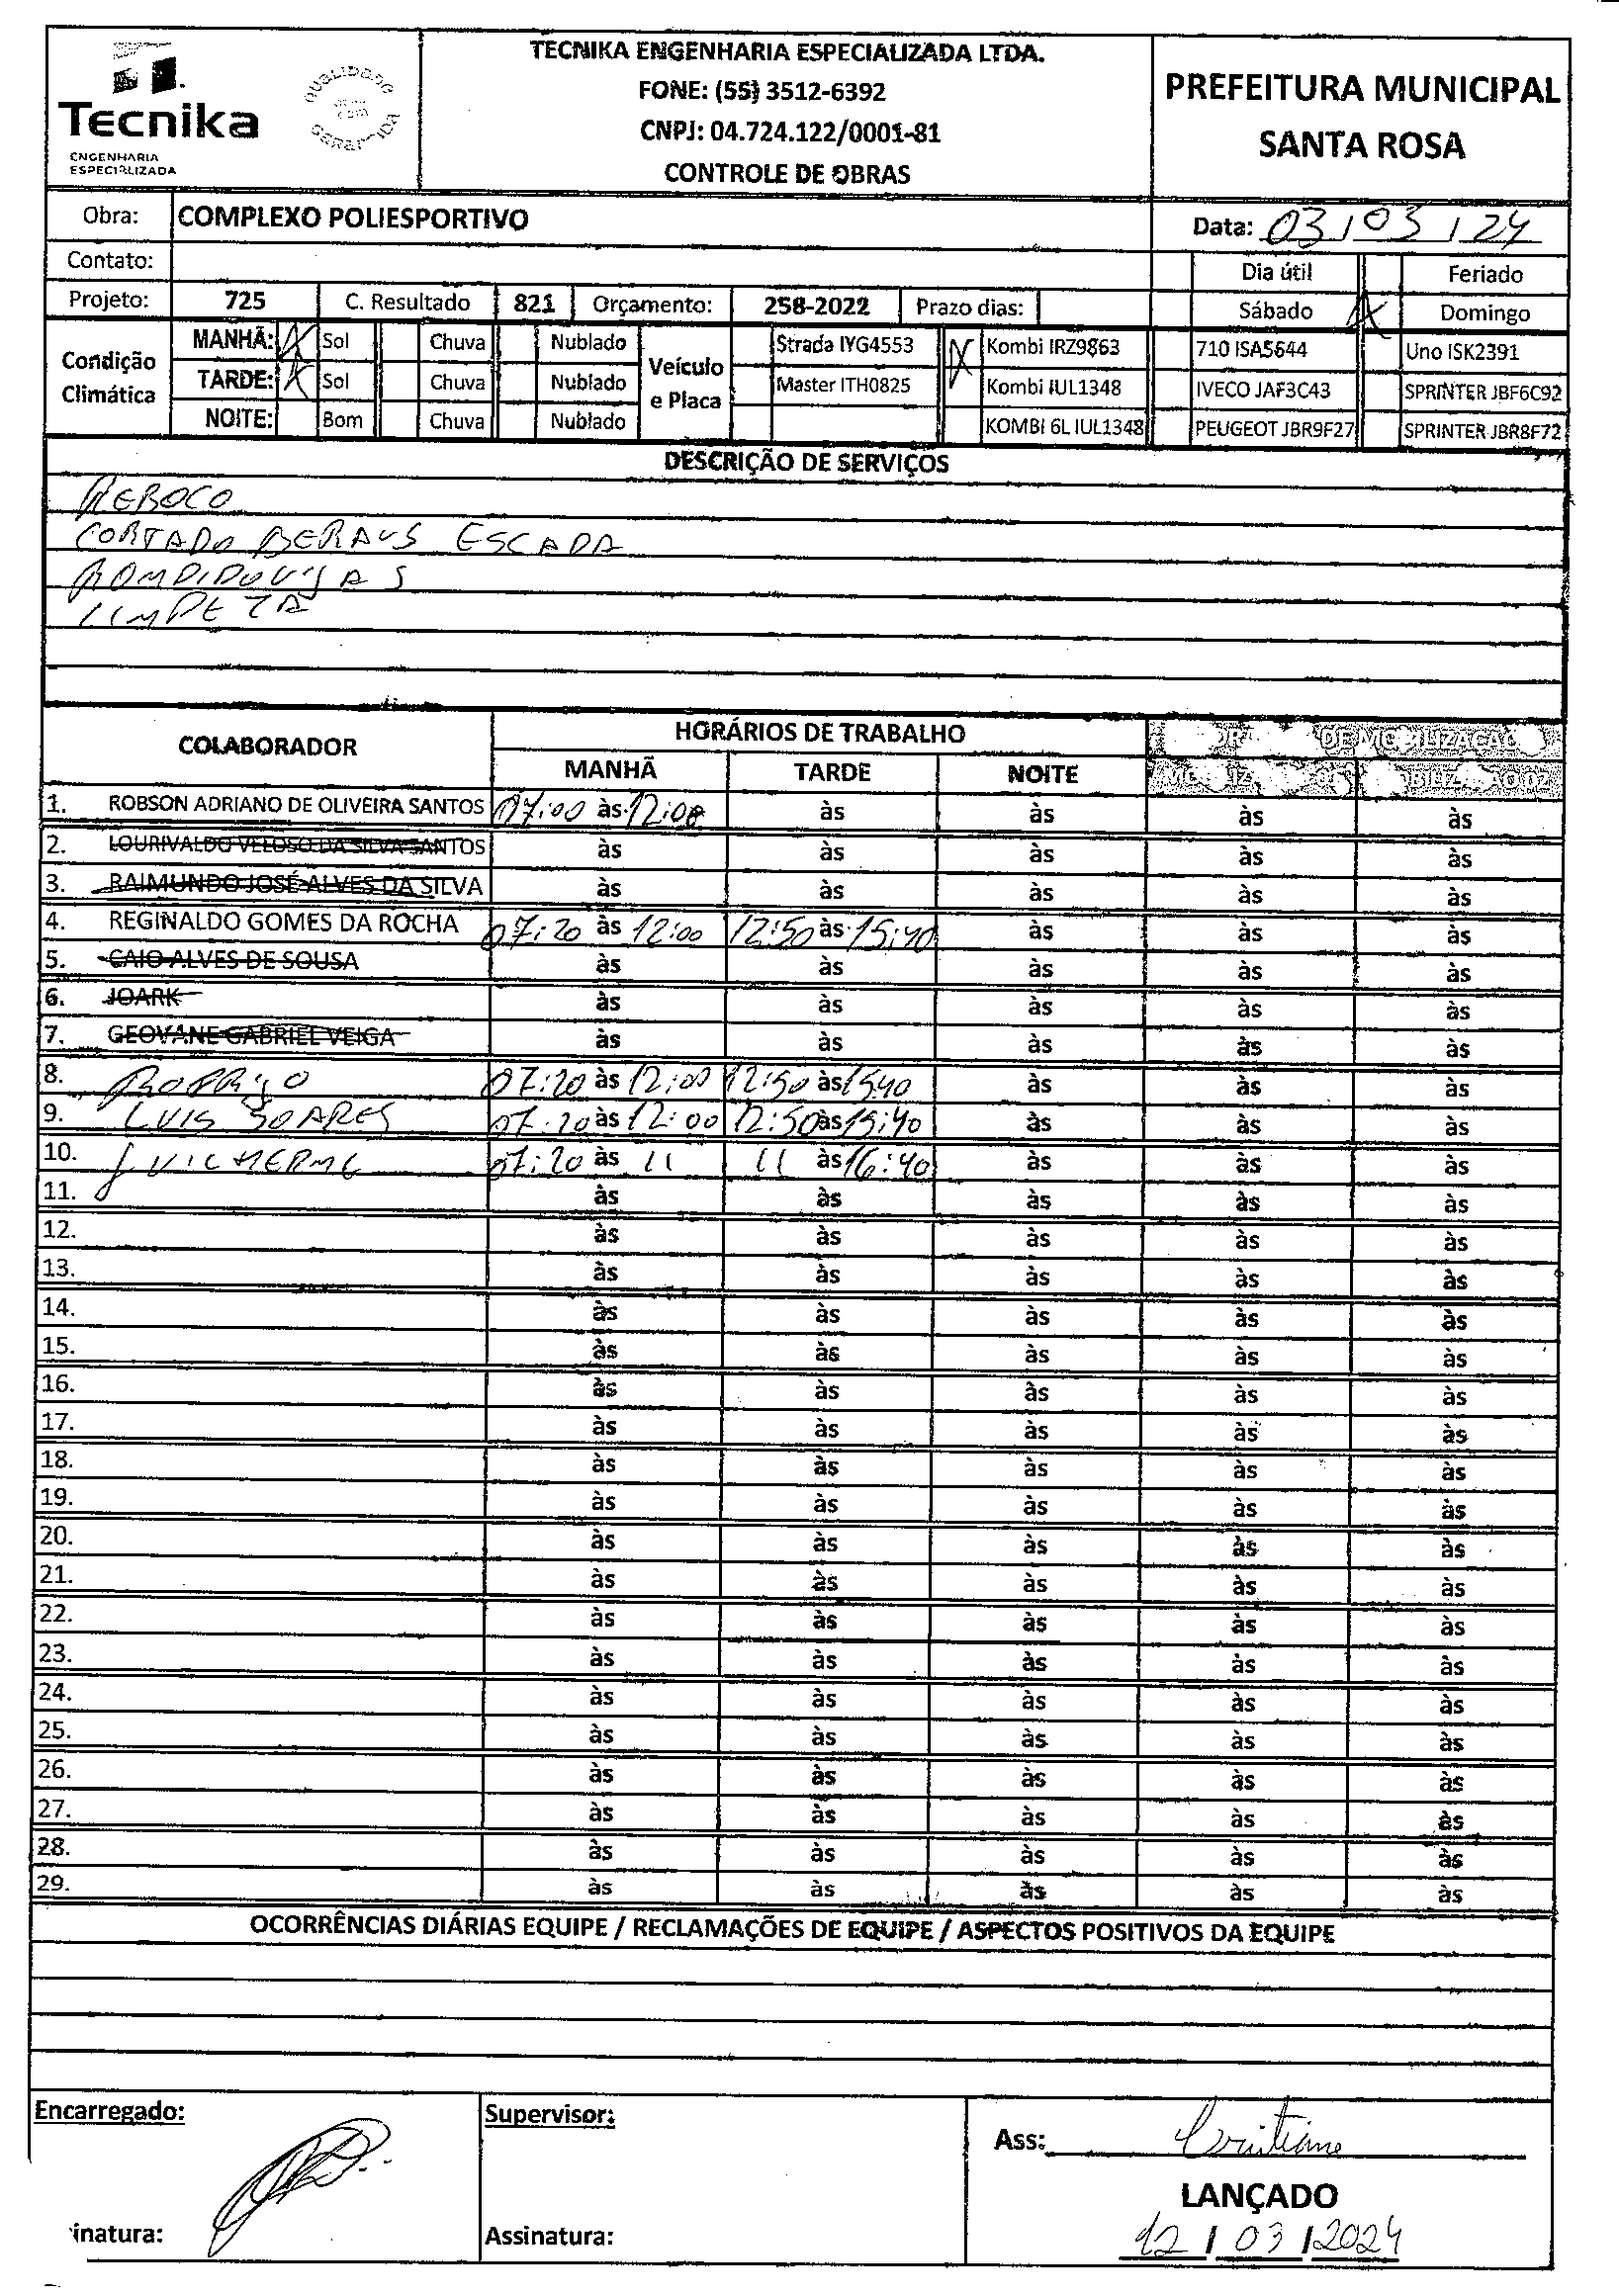 Tecnika
ENGENHARIA
ESPECIALIZADA
QUALIDADE
COM
GERANTIDA
TECNIKA ENGENHARIA ESPECIALIZADA LTDA.
FONE: (55) 3512-6392
CNPJ: 04.724.122/0001-81
CONTROLE DE OBRAS
PREFEITURA MUNICIPAL
SANTA ROSA
Obra: COMPLEXO POLIESPORTIVO Data: 03/03/24
Contato: Dia útil Feriado
Projeto: 725 C. Resultado 821 Orçamento: 258-2022 Prazo dias: Sábado X Domingo
Condição Climática
MANHÃ: X Sol Chuva Nublado
TARDE: X Sol Chuva Nublado
NOITE: Bom Chuva Nublado
Veículo e Placa
Strada IYG4553 X Kombi IRZ9863 710 ISA5644 Uno ISK2391
Master ITH0825 Kombi IUL1348 IVECO JAF3C43 SPRINTER JBF6C92
KOMBI 6L IUL1348 PEUGEOT JBR9F27 SPRINTER JBR8F72
DESCRIÇÃO DE SERVIÇOS
REBOCO
CORTADO ESCADA
LIMPEZA
COLABORADOR HORÁRIOS DE TRABALHO DE MOBILIZAÇÃO
MANHÃ TARDE NOITE
1. ROBSON ADRIANO DE OLIVEIRA SANTOS 07:00 às 12:00 às às às às
2. LOURIVALDO VELOSO DA SILVA SANTOS às às às às às
3. RAIMUNDO JOSÉ ALVES DA SILVA às às às às às
4. REGINALDO GOMES DA ROCHA 07:20 às 12:00 12:50 às 15:40 às às às
5. CAIO ALVES DE SOUSA às às às às às
6. JOARK às às às às às
7. GEOVANE GABRIEL VEIGA às às às às às
8. RODRIGO 07:20 às 12:00 12:50 às 15:40 às às às
9. LUIS SOARES 07:20 às 12:00 12:50 às 15:40 às às às
10. GUILHERME 07:20 às 11 11 às 16:40 às às às
11. às às às às às
12. às às às às às
13. às às às às às
14. às às às às às
15. às às às às às
16. às às às às às
17. às às às às às
18. às às às às às
19. às às às às às
20. às às às às às
21. às às às às às
22. às às às às às
23. às às às às às
24. às às às às às
25. às às às às às
26. às às às às às
27. às às às às às
28. às às às às às
29. às às às às às
OCORRÊNCIAS DIÁRIAS EQUIPE / RECLAMAÇÕES DE EQUIPE / ASPECTOS POSITIVOS DA EQUIPE
Encarregado: Supervisor:
Ass: Cristiane
LANÇADO
inatura: Assinatura: 12/03/2024